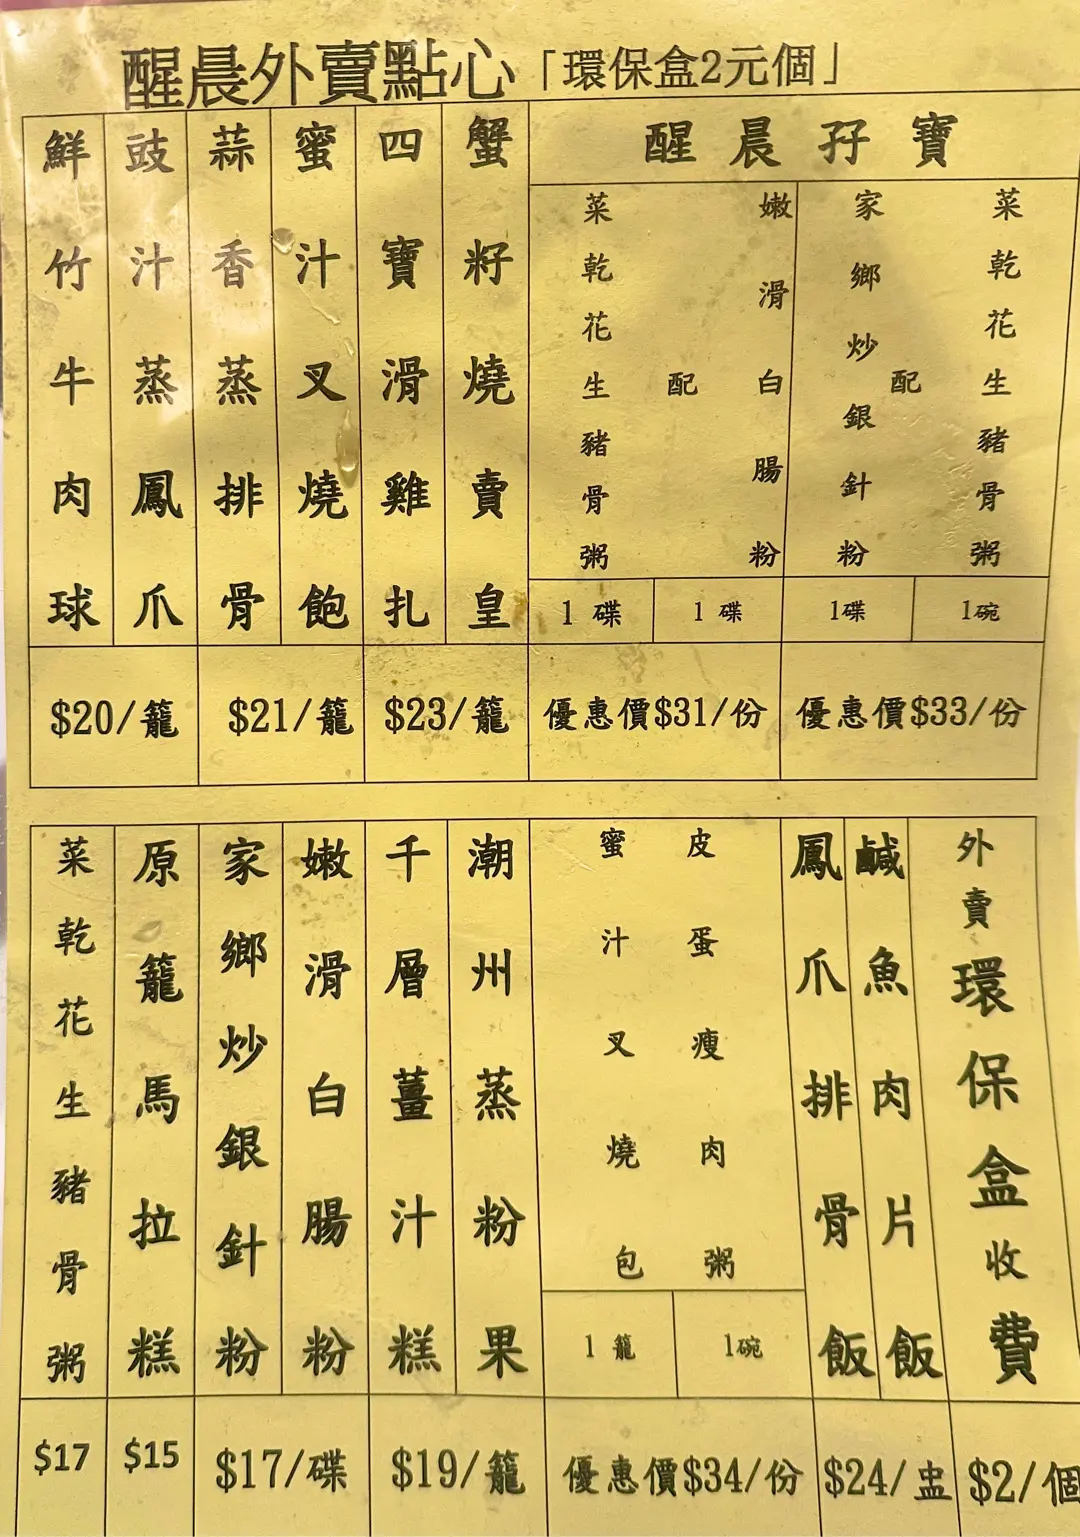 醒晨外賣點心「環保盒2元個」
鮮竹牛肉球
豉汁蒸鳳爪
$20/籠
蒜香蒸排骨
蜜汁叉燒飽
$21/籠
四寶滑雞扎
蟹籽燒賣皇
$23/籠
醒晨孖寶
菜乾花生豬骨粥
配
嫩滑白腸粉
1碟
1碟
優惠價$31/份
家鄉炒銀針粉
配
菜乾花生豬骨粥
1碟
1碗
優惠價$33/份
菜乾花生豬骨粥
$17
原籠馬拉糕
$15
家鄉炒銀針粉
嫩滑白腸粉
$17/碟
千層薑汁糕
潮州蒸粉果
$19/籠
蜜汁叉燒包
皮蛋瘦肉粥
1籠
1碗
優惠價$34/份
鳳爪排骨飯
鹹魚肉片飯
$24/盅
外賣環保盒收費
$2/個